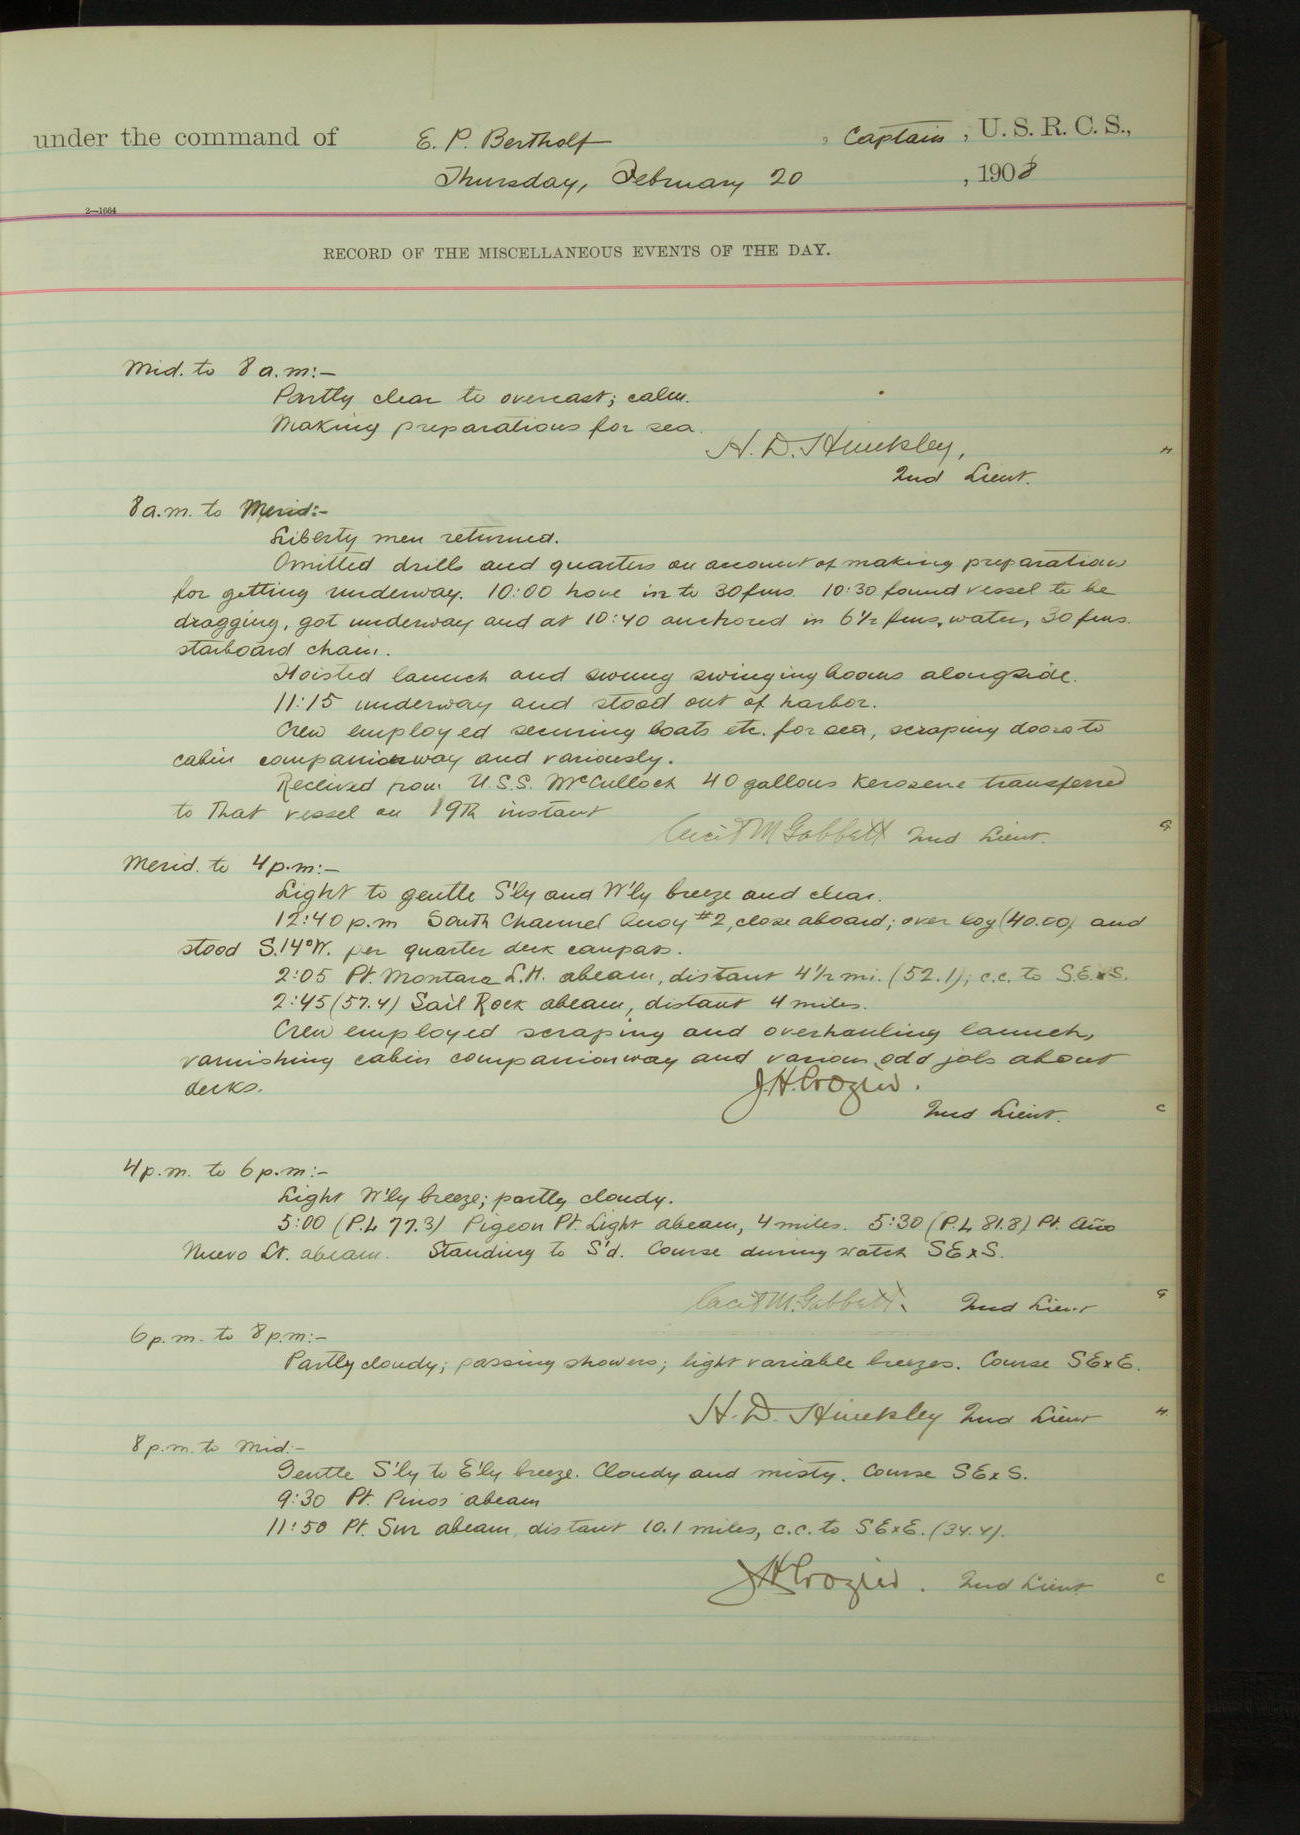 under the command of E. P. Bertholf , Captain , U. S. R. C. S.,
Thursday, February 20 , 1908
2—1664
RECORD OF THE MISCELLANEOUS EVENTS OF THE DAY.
Mid. to 8 a.m:-
Partly clear to overcast; calm.
Making preparations for sea.
H. D. Hinckley,
H.
2nd Lieut.
8 a.m. to Merid:-
Liberty men returned.
Omitted drills and quarters on account of making preparations
for getting underway. 10:00 hove in to 30 fms. 10:30 found vessel to be
dragging, got underway and at 10:40 anchored in 6½ fms. water, 30 fms.
starboard chain.
Hoisted launch and swung swinging booms alongside.
11:15 underway and stood out of harbor.
Crew employed securing boats etc. for sea, scraping doors to
cabin companionway and variously.
Received from U.S.S. McCulloch 40 gallons kerosene transferred
to that vessel on 19th instant
Cecil M Gabbett 2nd Lieut.
G
Merid. to 4 p.m:-
Light to gentle S'ly and W'ly breeze and clear.
12:40 p.m South Channel buoy #2, close aboard; over log (40.00) and
stood S.14°W. per quarter deck compass.
2:05 Pt. Montara L.H. abeam, distant 4½ mi. (52.1); c.c. to S.E.xS.
2:45 (57.4) Sail Rock abeam, distant 4 miles.
Crew employed scraping and overhauling launch,
varnishing cabin companionway and various odd jobs about
decks.
J.H. Crozier.
2nd Lieut.
C
4 p.m. to 6 p.m:-
Light W'ly breeze; partly cloudy.
5:00 (P.L 77.3) Pigeon Pt. Light abeam, 4 miles. 5:30 (P.L 81.8) Pt. Año
Nuevo Lt. abeam. Standing to S'd. Course during watch SExS.
Cecil M. Gabbett. 2nd Lieut
G
6 p.m. to 8 p.m:-
Partly cloudy; passing showers; light variable breezes. Course SExE.
H. D. Hinckley 2nd Lieut
H.
8 p.m. to Mid:-
Gentle S'ly to E'ly breeze. Cloudy and misty. Course SExS.
9:30 Pt. Pinos abeam
11:50 Pt. Sur abeam, distant 10.1 miles, c.c. to SExE. (34.4).
JH Crozier. 2nd Lieut
C